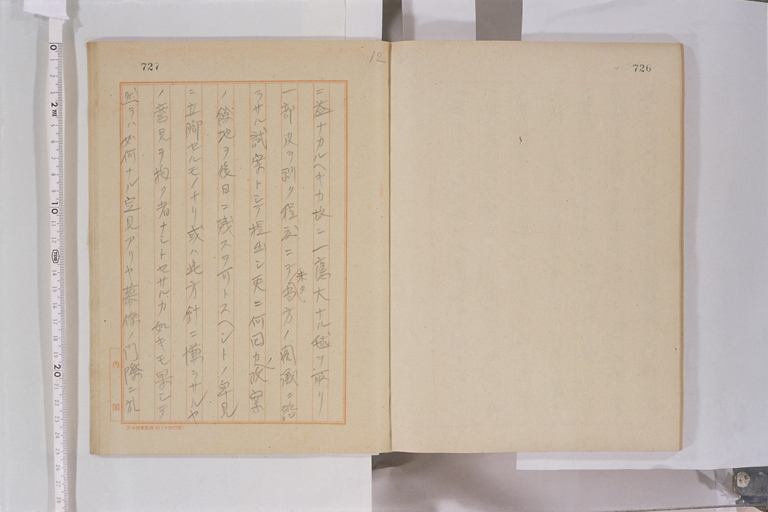 726
727
12
ニ益ナカルヘキカ故ニ一應大ナル 取リ
一部次ヲ剥ク程度ニテ当方ノ
未タ
ラサル試案トシテ提出シ更ニ何回カ改案
ノ餘地ヲ後日ニ残スヲ可トスヘシトノ卑見
ニ立脚セルモノナリ或ハ此方針ニ慊ラサルヤ
ノ意見ヲ抱ク者ナシトセサルカ如キモ果シテ
然ラハ如何ナル定見アリヤ幕僚ノ門際ニ
内閣